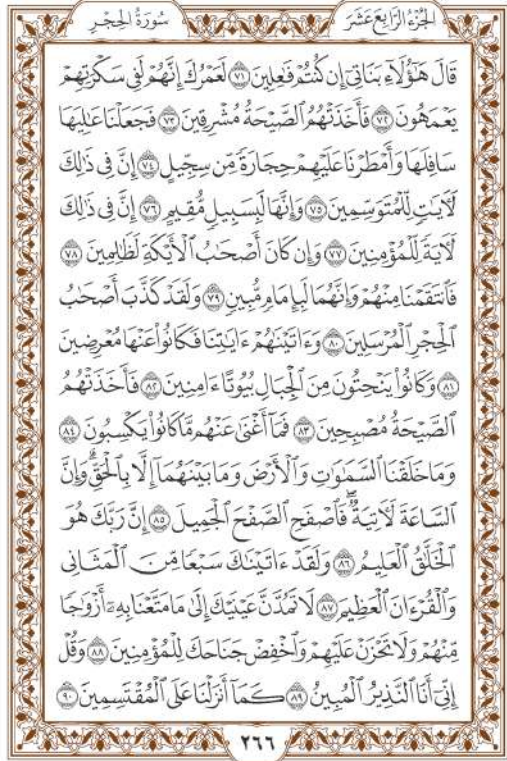 الجُزْءُ الرَّابِعَ عَشَرَ
سُورَةُ الحِجْرِ
قَالَ هَٰٓؤُلَآءِ بَنَاتِيٓ إِن كُنتُمْ فَٰعِلِينَ ٧١ لَعَمْرُكَ إِنَّهُمْ لَفِي سَكْرَتِهِمْ
يَعْمَهُونَ ٧٢ فَأَخَذَتْهُمُ ٱلصَّيْحَةُ مُشْرِقِينَ ٧٣ فَجَعَلْنَا عَٰلِيَهَا
سَافِلَهَا وَأَمْطَرْنَا عَلَيْهِمْ حِجَارَةً مِّن سِجِّيلٍ ٧٤ إِنَّ فِي ذَٰلِكَ
لَأٓيَٰتٍ لِّلْمُتَوَسِّمِينَ ٧٥ وَإِنَّهَا لَبِسَبِيلٍ مُّقِيمٍ ٧٦ إِنَّ فِي ذَٰلِكَ
لَأٓيَةً لِّلْمُؤْمِنِينَ ٧٧ وَإِن كَانَ أَصْحَٰبُ ٱلْأَيْكَةِ لَظَٰلِمِينَ ٧٨
فَٱنتَقَمْنَا مِنْهُمْ وَإِنَّهُمَا لَبِإِمَامٍ مُّبِينٍ ٧٩ وَلَقَدْ كَذَّبَ أَصْحَٰبُ
ٱلْحِجْرِ ٱلْمُرْسَلِينَ ٨٠ وَءَاتَيْنَٰهُمْ ءَايَٰتِنَا فَكَانُواْ عَنْهَا مُعْرِضِينَ
٨١ وَكَانُواْ يَنْحِتُونَ مِنَ ٱلْجِبَالِ بُيُوتًا ءَامِنِينَ ٨٢ فَأَخَذَتْهُمُ
ٱلصَّيْحَةُ مُصْبِحِينَ ٨٣ فَمَآ أَغْنَىٰ عَنْهُم مَّا كَانُواْ يَكْسِبُونَ ٨٤
وَمَا خَلَقْنَا ٱلسَّمَٰوَٰتِ وَٱلْأَرْضَ وَمَا بَيْنَهُمَآ إِلَّا بِٱلْحَقِّ ۗ وَإِنَّ
ٱلسَّاعَةَ لَأٓتِيَةٌ ۖ فَٱصْفَحِ ٱلصَّفْحَ ٱلْجَمِيلَ ٨٥ إِنَّ رَبَّكَ هُوَ
ٱلْخَلَّٰقُ ٱلْعَلِيمُ ٨٦ وَلَقَدْ ءَاتَيْنَٰكَ سَبْعًا مِّنَ ٱلْمَثَانِي
وَٱلْقُرْءَانَ ٱلْعَظِيمَ ٨٧ لَا تَمُدَّنَّ عَيْنَيْكَ إِلَىٰ مَا مَتَّعْنَا بِهِۦٓ أَزْوَٰجًا
مِّنْهُمْ وَلَا تَحْزَنْ عَلَيْهِمْ وَٱخْفِضْ جَنَاحَكَ لِلْمُؤْمِنِينَ ٨٨ وَقُلْ
إِنِّيٓ أَنَا ٱلنَّذِيرُ ٱلْمُبِينُ ٨٩ كَمَآ أَنزَلْنَا عَلَى ٱلْمُقْتَسِمِينَ ٩٠
٢٦٦